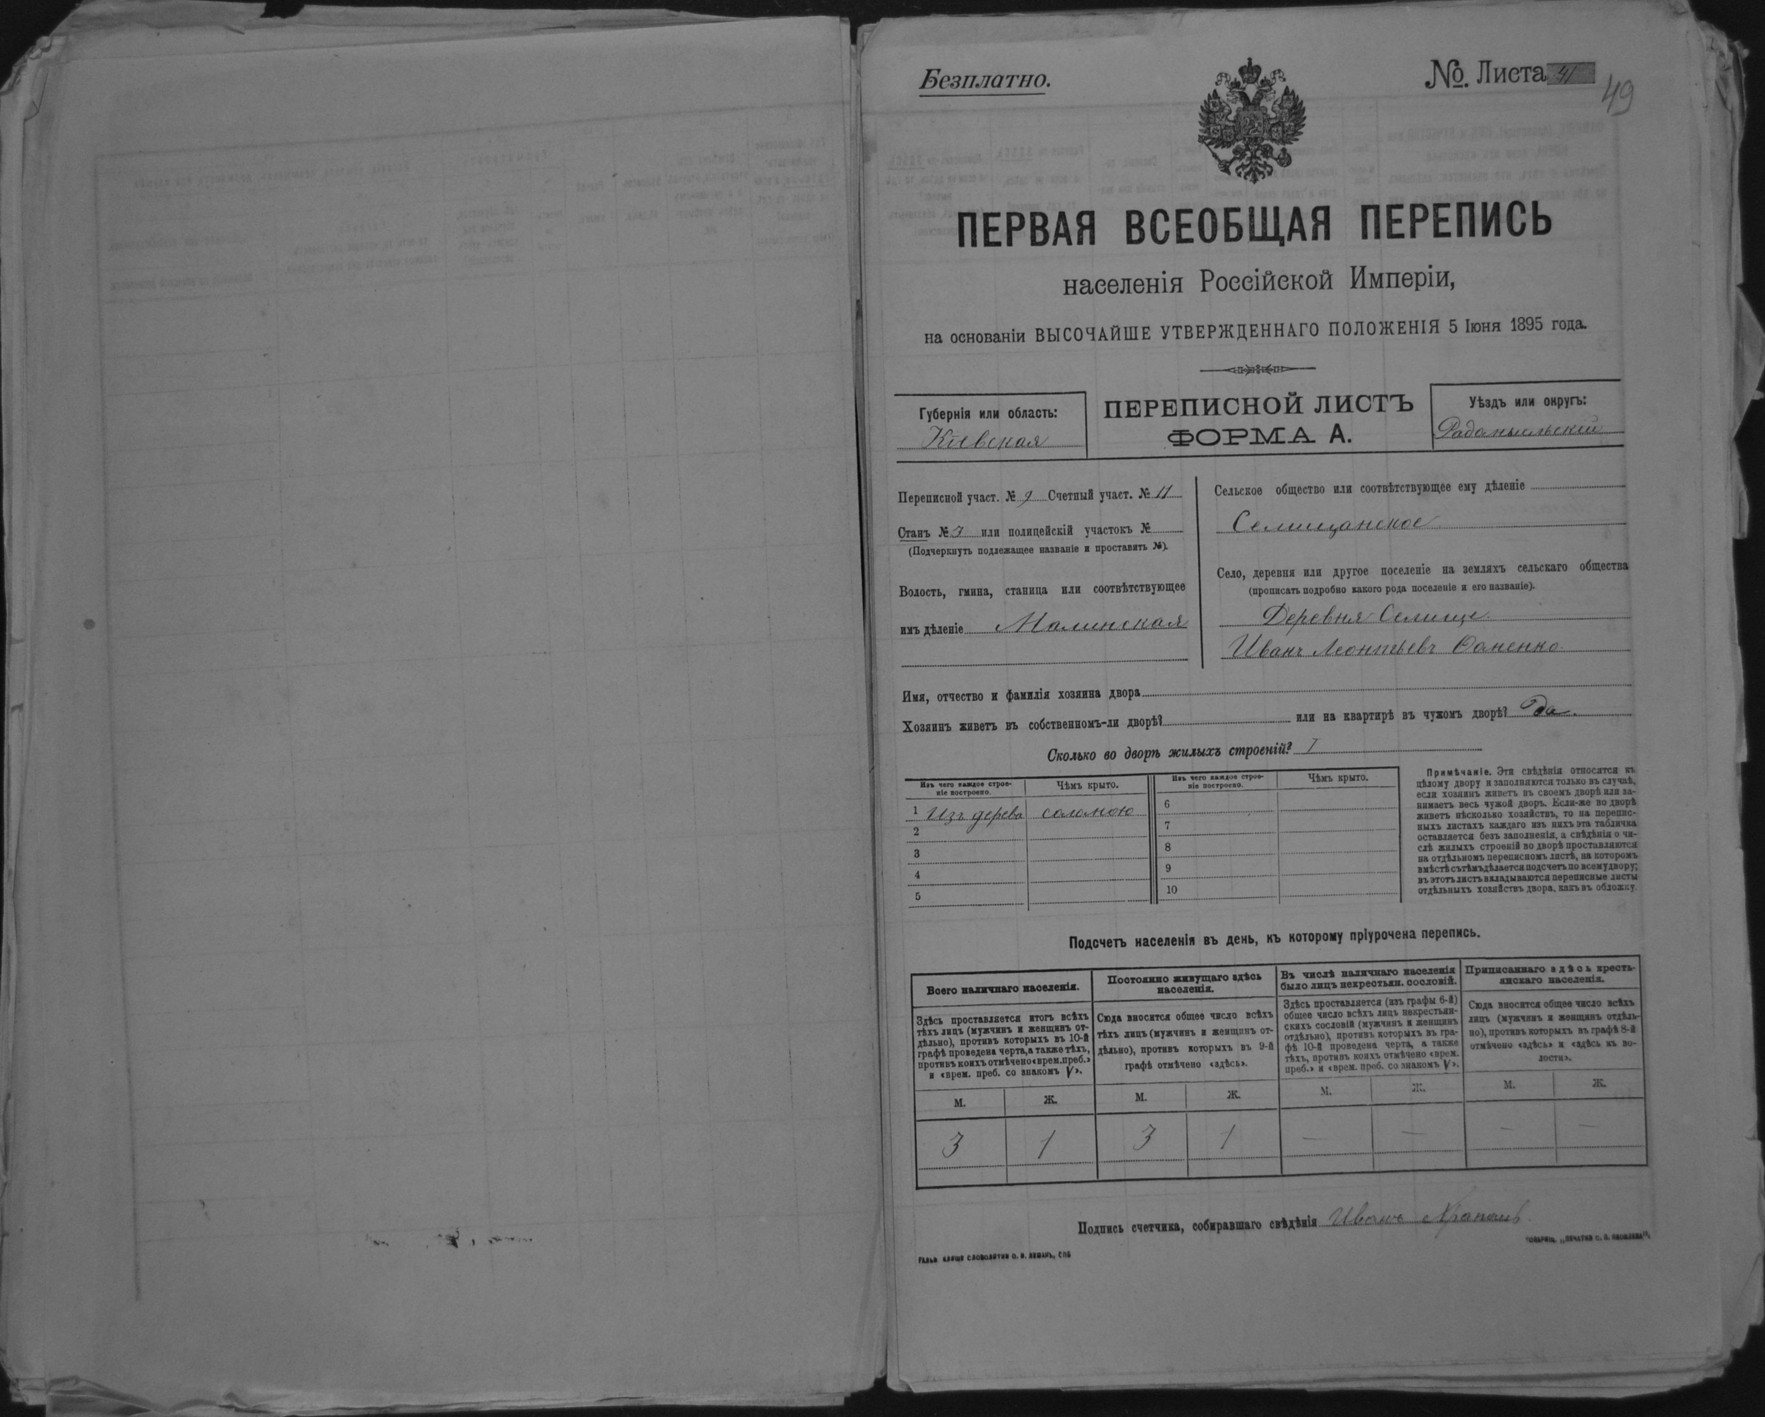 Безплатно.
№. Листа 41
49
ПЕРВАЯ ВСЕОБЩАЯ ПЕРЕПИСЬ
населенія Россійской Имперіи,
на основаніи ВЫСОЧАЙШЕ УТВЕРЖДЕННАГО ПОЛОЖЕНІЯ 5 Іюня 1895 года.
Губернія или область:
Кіевская
ПЕРЕПИСНОЙ ЛИСТЪ
ФОРМА А.
Уѣздъ или округъ:
Радомысльскій
Переписной участ. № 9 Счетный участ. № 11
Станъ № 3 или полицейскій участокъ №
(Подчеркнуть подлежащее названіе и проставить №).
Волость, гмина, станица или соотвѣтствующее
имъ дѣленіе Малинская
Сельское общество или соотвѣтствующее ему дѣленіе
Селищанское
Село, деревня или другое поселеніе на земляхъ сельскаго общества
(прописать подробно какого рода поселеніе и его названіе).
Деревня Селище
Иванъ Леонтьевъ
Имя, отчество и фамилія хозяина двора
Хозяинъ живетъ въ собственномъ-ли дворѣ? или на квартирѣ въ чужомъ дворѣ? Да.
Сколько во дворѣ жилыхъ строеній? 1
Изъ чего каждое строеніе построено.
Чѣмъ крыто.
Изъ чего каждое строеніе построено.
Чѣмъ крыто.
1 Изъ дерева соломою
2
3
4
5
6
7
8
9
10
Примѣчаніе. Эти свѣдѣнія относятся къ
цѣлому двору и заполняются только въ случаѣ,
если хозяинъ живетъ въ своемъ дворѣ или за-
нимаетъ весь чужой дворъ. Если-же во дворѣ
живетъ нѣсколько хозяйствъ, то на перепис-
ныхъ листахъ каждаго изъ нихъ эта табличка
оставляется безъ заполненія, а свѣдѣнія о чи-
слѣ жилыхъ строеній во дворѣ проставляются
на отдѣльномъ переписномъ листѣ, на которомъ
вмѣстѣ съ тѣмъ дѣлается подсчетъ по всему двору;
въ этотъ листъ вкладываются переписные листы
отдѣльныхъ хозяйствъ двора, какъ въ обложку.
Подсчетъ населенія въ день, къ которому пріурочена перепись.
Всего наличнаго населенія.
Здѣсь проставляется итогъ всѣхъ
тѣхъ лицъ (мужчинъ и женщинъ от-
дѣльно), противъ которыхъ въ 10-й
графѣ проведена черта, а также тѣхъ,
противъ коихъ отмѣчено «врем. преб.»
и «врем. преб. со знакомъ V».
Постоянно живущаго здѣсь
населенія.
Сюда вносится общее число всѣхъ
тѣхъ лицъ (мужчинъ и женщинъ от-
дѣльно), противъ которыхъ въ 9-й
графѣ отмѣчено «здѣсь».
Въ числѣ наличнаго населенія
было лицъ некрестьян. сословій.
Здѣсь проставляется (изъ графы 6-й)
общее число всѣхъ лицъ некрестьян-
скихъ сословій (мужчинъ и женщинъ
отдѣльно), противъ которыхъ въ гра-
фѣ 10-й проведена черта, а также
тѣхъ, противъ коихъ отмѣчено «врем.
преб.» и «врем. преб. со знакомъ V».
Приписаннаго здѣсь кресть-
янскаго населенія.
Сюда вносится общее число всѣхъ
лицъ (мужчинъ и женщинъ отдѣль-
но), противъ которыхъ въ графѣ 8-й
отмѣчено «здѣсь» и «здѣсь къ во-
лости».
М. Ж. М. Ж. М. Ж. М. Ж.
3 1 3 1 — — — —
Подпись счетчика, собиравшаго свѣдѣнія Иванъ